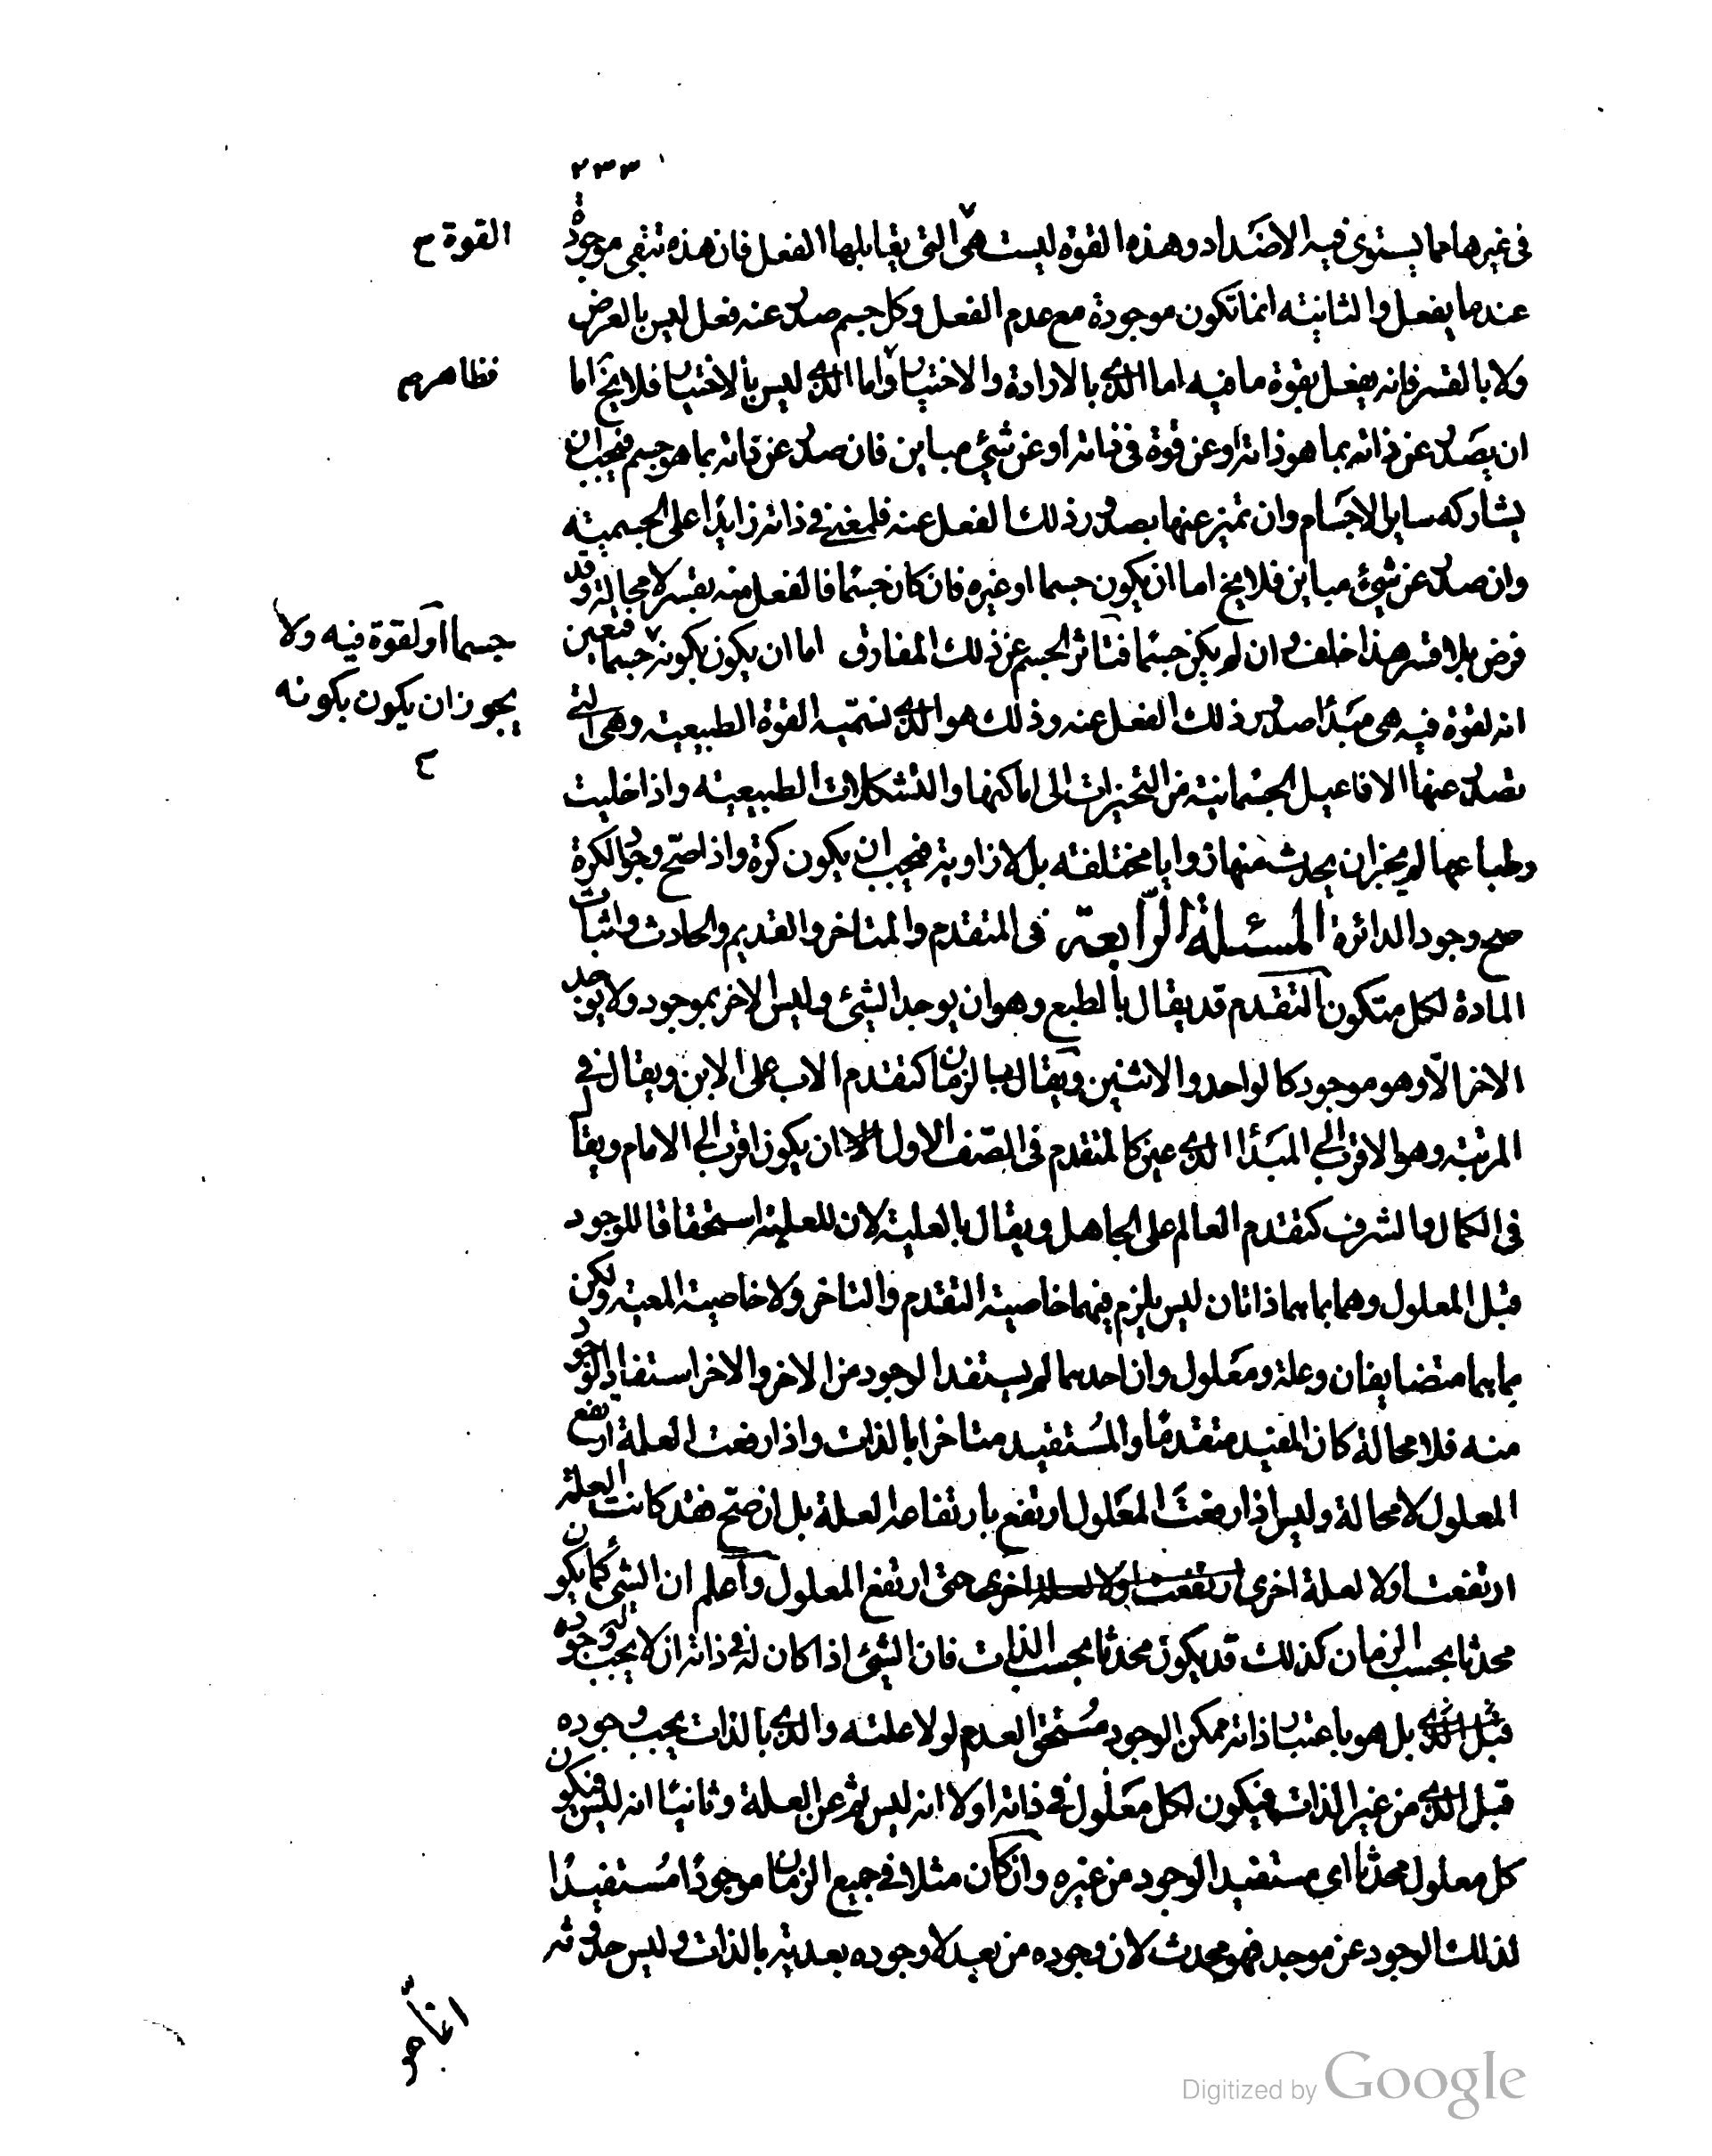 ٢٣٣
فى غيرها مما يستوى فيه الاضداد وهذه القوة ليست هى التى يقابلها الفعل فان هذه تبقى موجودة
القوة
عندما يفعل والثانية انما تكون موجودة مع عدم الفعل وكل جسم صدر عنه فعل ليس بالعرض
ولا بالقسر فانه يفعل بقوة ما فيه اما الذى بالارادة والاختيار واما الذى ليس بالاختيار فلا يخ اما
فظاهر
ان يصدر عن ذاته بما هو ذاته او عن قوة فى ذاته او عن شئ مباين فان صدر عن ذاته بما هو جسم فيجب ان
يشاركه ساير الاجسام وان تميز عنها بصدور ذلك الفعل عنه فلمعنى فى ذاته زايدا على الجسمية
وان صدر عن شئ مباين فلا يخ اما ان يكون جسما او غيره فان كان جسما فالفعل منه بقسر لا محالة وقد
فرض بلا قسر هذا خلف وان لم يكن جسما فتاثر الجسم عن ذلك المفارق اما ان يكون بكونه جسما فتعين
جسما او لقوة فيه ولا
يجوز ان يكون بكونه
انه لقوة فيه هى مبدأ صدور ذلك الفعل عنه وذلك هو الذى نسميه القوة الطبيعية وهى التى
تصدر عنها الافاعيل الجسمانية من التحيزات الى اماكنها والتشكلات الطبيعية واذا خليت
وطباعها لم يجز ان يحدث منها زوايا مختلفة بل لا زاوية فيجب ان يكون كرة واذا صح وجود الكرة
صح وجود الدائرة المسئلة الرابعة فى المتقدم والمتاخر والقديم والحادث واثبات
المادة لكل متكون التقدم قد يقال بالطبع وهو ان يوجد الشئ وليس الاخر بموجود ولا يوجد
الاخر الا وهو موجود كالواحد والاثنين ويقال بالزمان كتقدم الاب على الابن ويقال فى
المرتبة وهو الاقرب الى المبدأ الذى عين كالمتقدم فى الصف الاول ان يكون اقرب الى الامام ويقال
فى الكمال والشرف كتقدم العالم على الجاهل ويقال بالعلية لان للعلية استحقاقا للوجود
قبل المعلول وهما بما هما ذاتان ليس يلزم فيهما خاصية التقدم والتاخر ولا خاصية المعية ولكن
بما هما متضايفان وعلة ومعلول وان احدهما لم يستفد الوجود من الاخر والاخر استفاد الوجود
منه فلا محالة كان المفيد متقدما والمستفيد متاخرا بالذات واذا رفعت العلة ارتفع
المعلول لا محالة وليس اذا رفعت المعلول ارتفع بارتفاعه العلة بل ان صح فقد كانت العلة
ارتفعت اولا لعلة اخرى ارتفعت اولا لعلة اخرى حتى ارتفع المعلول واعلم ان الشئ كما يكون
محدثا بحسب الزمان كذلك قد يكون محدثا بحسب الذات فان الشئ اذا كان له فى ذاته ان لا يجب له وجوده
بل هو باعتبار ذاته ممكن الوجود مستحق العدم لولا علته والذى بالذات يجب وجوده
قبل الذى من غير الذات فيكون لكل معلول فى ذاته اولا انه ليس ثم عن العلة وثانيا انه ليس فيكون
كل معلول محدثا اى مستفيد الوجود من غيره وان كان مثلا فى جميع الزمان موجودا مستفيدا
لذلك الوجود عن موجد فهو محدث لان وجوده من بعد لا وجوده بعدية بالذات وليس حدوثه